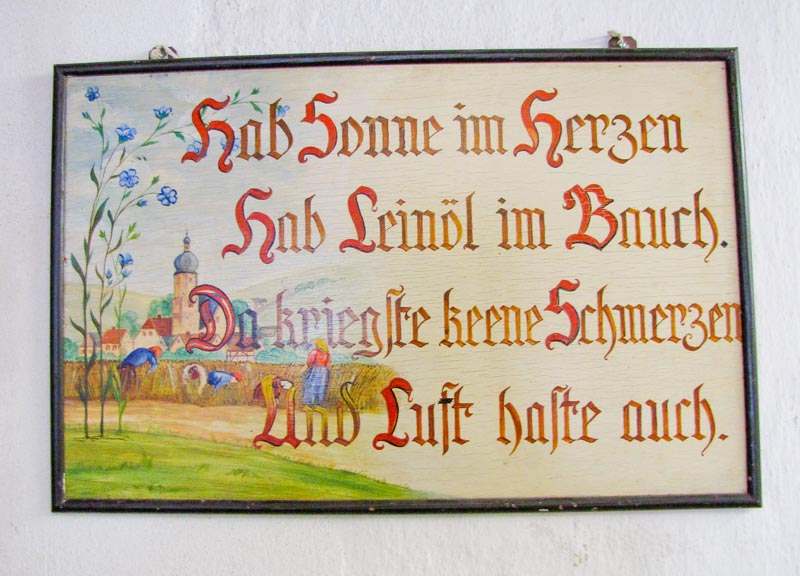 Hab Sonne im Herzen
Hab Leinöl im Bauch.
Da kriegste keene Schmerzen
Und Luft haste auch.